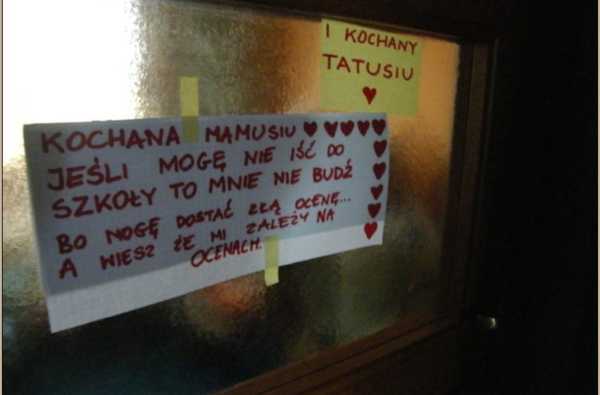 I KOCHANY
TATUSIU ♥
KOCHANA MAMUSIU ♥ ♥♥♥♥
JEŚLI MOGĘ NIE IŚĆ DO
SZKOŁY TO MNIE NIE BUDŹ
BO MOGĘ DOSTAĆ ZŁĄ OCENĘ...
A WIESZ ŻE MI ZALEŻY NA
OCENACH.